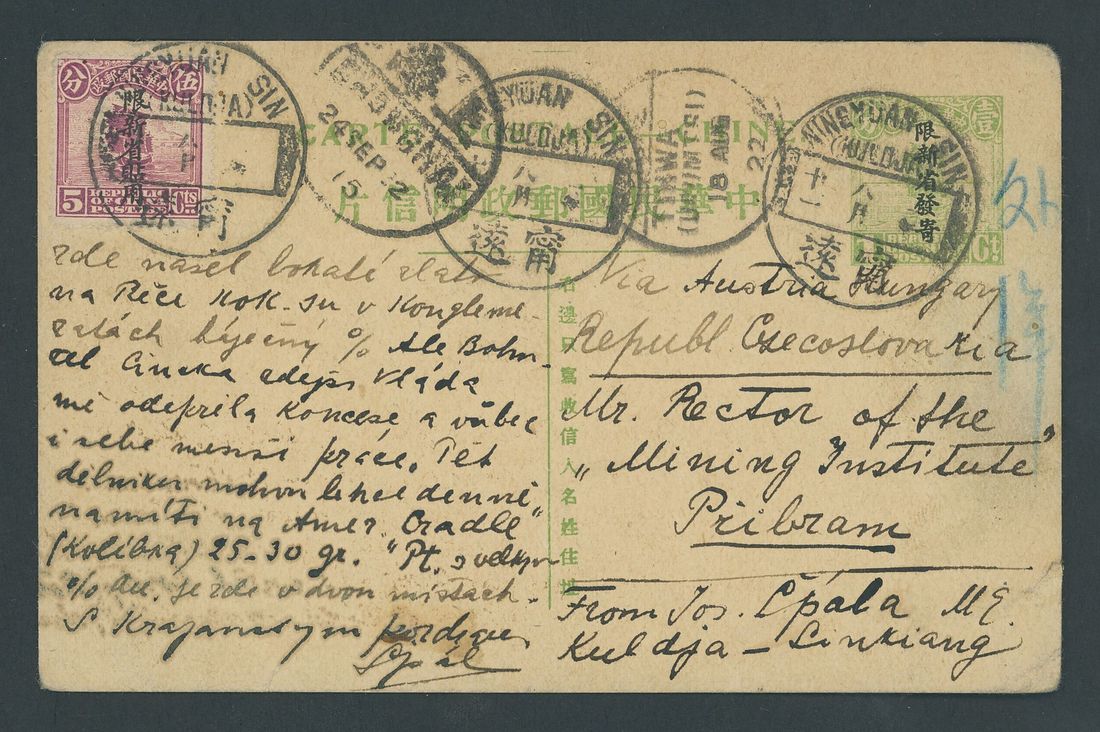 CARTE POSTALE CHINE
中華民國郵政明信片
右邊只寫收信人名姓住址
伍
分
限新省貼用
5 Cts
REPUBLIC OF
壹
限新省發寄
NINGYUAN SIN
(KULDJA)
八月
十一
甯遠
NINGYUAN SIN
(KULDJA)
八月
甯遠
TIHWA
(URUMTSI)
18 AUG
22
24 SEP 2
15
zde našel bohaté zlato
na Řéce Kok.su v Konglome-
rátách báječný % Ale Bohu-
žel Čínska zdejší Vláda
mě odepřela koncese a vůbec
i sebe menší práce. Pět
dělniku mohou lehce denně
namíti na Amer. Cradle"
(Kolíbka) 25-30 gr. "Pt. s velkým
% Au. je zde v dvou místach.
S Krajanským pozdravem
Špál
Via Austria Hungary
Republ Csecoslovakia
Mr. Rector of the
„Mining Institute"
Přibram
From Jos. Špála M E.
Kuldja – Sinkiang